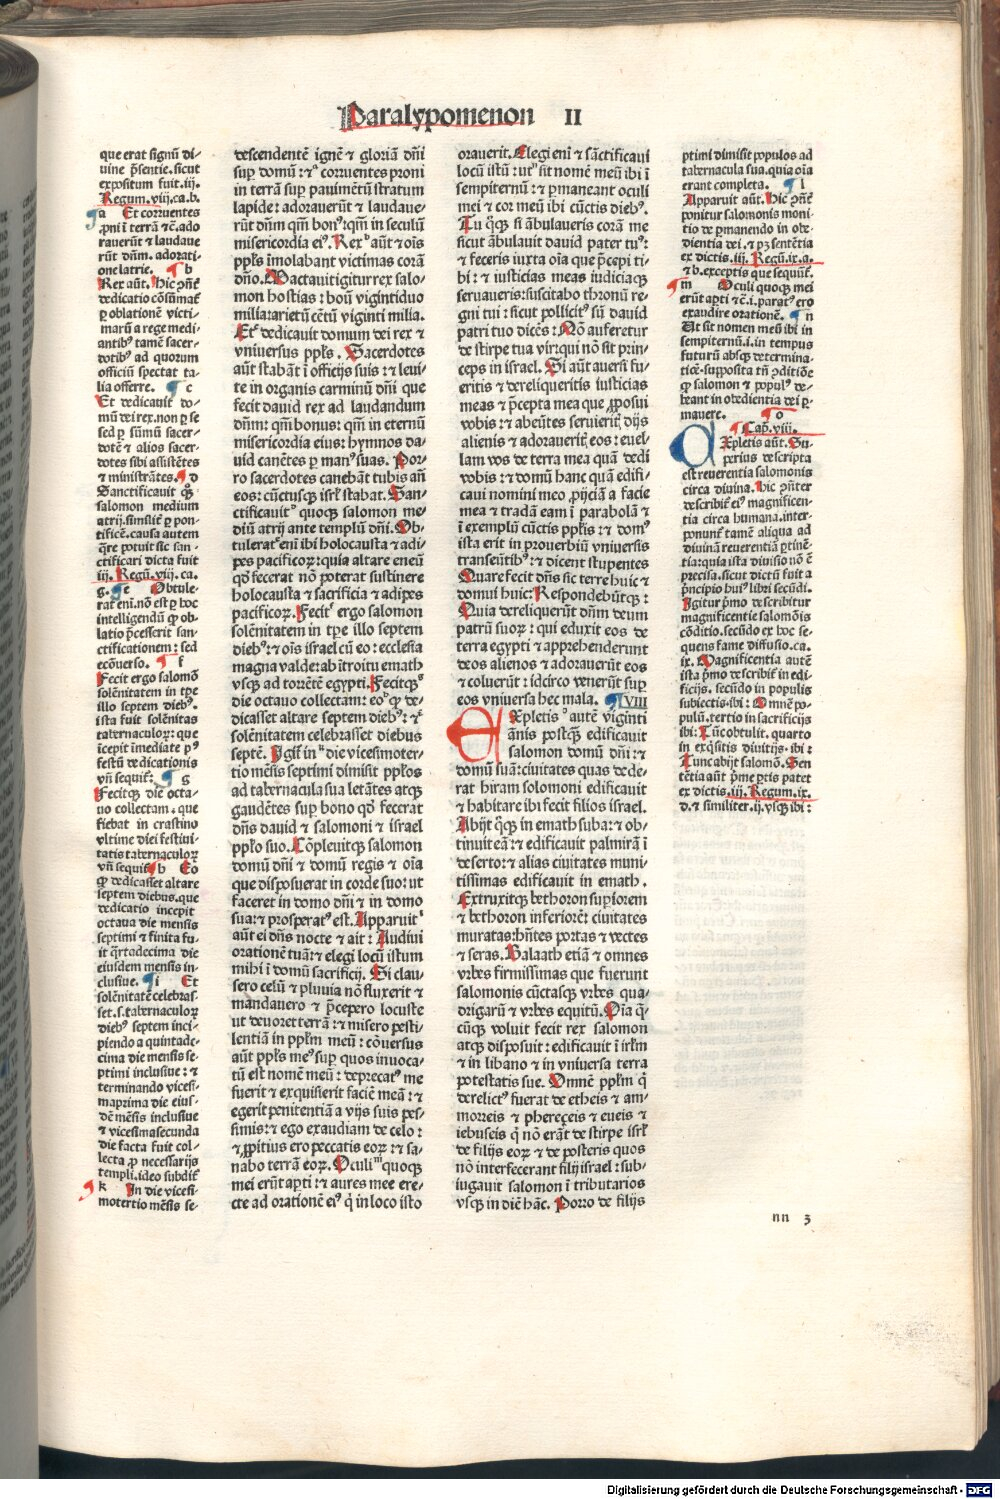 Paralypomenon II
que erat signū di-
uine p̄sentie. sicut
expositum fuit. iij.
Regum. viij. ca. b.
a Et corruentes
ꝓni ī terrā ⁊ c̄. ado
rauerūt ⁊ laudaue
rūt dūm. adorati-
one latrie. b
Rex aūt. Hic pōit̄
dedicatio cōsūmat̄
ꝑ oblationē victi-
marū a rege medi-
antibꝰ tamē sacer-
dotibꝰ ad quorum
officiū spectat ta-
lia offerre. c
Et dedicauit do-
mū dei rex. non ꝑ se
sed ꝑ sūmū sacer-
dotē ⁊ alios sacer-
dotes sibi assistētes
⁊ ministrātes. d
Sanctificauit qꝫ
salomon medium
atrij. similit̄ ꝑ pon-
tificē. causa autem
q̄re potuit sic san-
ctificari dicta fuit
iij. Regū. viij. ca.
g. e Obtule-
rat eni. nō est ꝑ hoc
intelligendū ꝙ ob-
latio p̄cesserit san-
ctificationem: sed
ecōuerso. f
Fecit ergo salomō
solēnitatem in tꝑe
illo septem diebꝰ.
ista fuit solēnitas
tabernaculoꝝ: que
īcepit īmediate pꝰ
festū dedicationis
vn̄ sequit̄: g
Fecitqꝫ die octa-
uo collectam. que
fiebat in crastino
vltime diei festiui-
tatis tabernaculoꝝ
vn̄ sequit̄ h Eo
ꝙ dedicasset altare
septem diebus. que
dedicatio incepit
octaua die mensis
septimi ⁊ finita fu-
it q̄rtadecima die
eiusdem mensis in-
clusiue. i Et
solēnitatē celebras-
set. s. tabernaculoꝝ
diebꝰ septem inci-
piendo a quintade-
cima die mensis se-
ptimi inclusiue: ⁊
terminando vicesi-
maprima die eius-
dē mēsis inclusiue
⁊ vicesimasecunda
die facta fuit col-
lecta ꝓ necessarijs
templi. ideo subdit̄
k In die vicesi-
motertio mēsis se-
descendentē ignē ⁊ gloriā dn̄i
suꝑ domū: ⁊ corruentes proni
in terrā suꝑ pauimētū stratum
lapide: adorauerūt ⁊ laudaue-
rūt dn̄m qm̄ bonꝰ: qm̄ in seculū
misericordia eiꝰ. Rex aūt ⁊ oīs
ppl̄s īmolabant victimas corā
dn̄o. Mactauit igitur rex salo-
mon hostias: boū vigintiduo
milia: arietū cētū viginti milia.
Et dedicauit domum dei rex ⁊
vniuersus ppl̄s. Sacerdotes
aūt stabāt ī officijs suis: ⁊ leui-
te in organis carminū dn̄i que
fecit dauid rex ad laudandum
dn̄m: qm̄ bonus: qm̄ in eternū
misericordia eius: hymnos da-
uid canētes ꝑ manꝰ suas. Por-
ro sacerdotes canebāt tubis an̄
eos: cūctusqꝫ isrl̄ stabat. San-
ctificauit quoqꝫ salomon me-
diū atrij ante templū dn̄i. Ob-
tulerat eni ibi holocausta ⁊ adi-
pes pacificoꝝ: quia altare eneū
qd̄ fecerat nō poterat sustinere
holocausta ⁊ sacrificia ⁊ adipes
pacificoꝝ. Fecit ergo salomon
solēnitatem in tꝑe illo septem
diebꝰ: ⁊ oīs israel cū eo: ecclesia
magna valde: ab ītroitu emath
vsqꝫ ad torrētē egypti. Fecitqꝫ
die octauo collectam: eo ꝙ de-
dicasset altare septem diebꝰ: ⁊
solēnitatem celebrasset diebus
septē. Igit̄ in die vicesimoter-
tio mēsis septimi dimisit ppl̄os
ad tabernacula sua letātes atqꝫ
gaudētes suꝑ bono qd̄ fecerat
dn̄s dauid ⁊ salomoni ⁊ israel
ppl̄o suo. Cōpleuitqꝫ salomon
domū dn̄i ⁊ domū regis ⁊ oīa
que disposuerat in corde suo: ut
faceret in domo dn̄i ⁊ in domo
sua: ⁊ prosperatꝰ est. Apparuit
aūt ei dn̄s nocte ⁊ ait: Audiui
orationē tuā: ⁊ elegi locū istum
mihi ī domū sacrificij. Si clau-
sero celū ⁊ pluuia nō fluxerit ⁊
mandauero ⁊ p̄cepero locuste
ut deuoret terrā: ⁊ misero pesti-
lentiā in ppl̄m meū: cōuersus
aūt ppl̄s meꝰ suꝑ quos inuoca-
tū est nomē meū: deprecatꝰ me
fuerit ⁊ exquisierit faciē meā: ⁊
egerit penitentiā a vijs suis pes-
simis: ⁊ ego exaudiam de celo:
⁊ ꝓpitius ero peccatis eoꝝ ⁊ sa-
nabo terrā eoꝝ. Oculi quoqꝫ
mei erūt aꝑti: ⁊ aures mee ere-
cte ad orationē eiꝰ q̄ in loco isto
orauerit. Elegi eni ⁊ sāctificaui
locū istū: ut sit nomē meū ibi ī
sempiternū: ⁊ ꝑmaneant oculi
mei ⁊ cor meū ibi cūctis diebꝰ.
Tu q̄qꝫ si ābulaueris corā me
sicut ābulauit dauid pater tuꝰ:
⁊ feceris iuxta oīa que p̄cepi ti-
bi: ⁊ iusticias meas iudiciaqꝫ
seruaueris: suscitabo thronū re-
gni tui: sicut pollicitꝰ sū dauid
patri tuo dicēs: Nō auferetur
de stirpe tua vir: qui nō sit prin-
ceps in israel. Si aūt auersi fu-
eritis ⁊ dereliqueritis iusticias
meas ⁊ p̄cepta mea que ꝓposui
vobis: ⁊ abeūtes seruierit̄ dijs
alienis ⁊ adorauerit̄ eos: euel-
lam vos de terra mea quā dedi
vobis: ⁊ domū hanc quā edifi-
caui nomini meo ꝓijciā a facie
mea ⁊ tradā eam ī parabolā ⁊
ī exemplū cūctis ppl̄is: ⁊ domꝰ
ista erit in prouerbiū vniuersis
transeūtibꝰ: ⁊ dicent stupentes
Quare fecit dn̄s sic terre huic ⁊
domui huic: Respondebūtqꝫ:
Quia dereliquerūt dn̄m deum
patrū suoꝝ: qui eduxit eos de
terra egypti ⁊ apprehenderunt
deos alienos ⁊ adorauerūt eos
⁊ coluerūt: idcirco venerūt suꝑ
eos vniuersa hec mala. VIII
EXpletis autē viginti
ānis postqꝫ edificauit
salomon domū dn̄i: ⁊
domū suā: ciuitates quas dede-
rat hiram solomoni edificauit
⁊ habitare ibi fecit filios israel.
Abijt q̄qꝫ in emath suba: ⁊ ob-
tinuit eā: ⁊ edificauit palmirā ī
deserto: ⁊ alias ciuitates muni-
tissimas edificauit in emath.
Extruxitqꝫ bethoron suꝑiorem
⁊ bethoron inferiorē: ciuitates
muratas: hn̄tes portas ⁊ vectes
⁊ seras. Balaath etiā ⁊ omnes
vrbes firmissimas que fuerunt
salomonis cūctasqꝫ vrbes qua-
drigarū ⁊ vrbes equitū. Oīa q̄-
cūqꝫ voluit fecit rex salomon
atqꝫ disposuit: edificauit ī irl̄m
⁊ in libano ⁊ in vniuersa terra
potestatis sue. Omnē ppl̄m q̄
derelictꝰ fuerat de etheis ⁊ am-
morreis ⁊ pherezeis ⁊ eueis ⁊
iebuseis q̄ nō erāt de stirpe isrl̄
de filijs eoꝝ ⁊ de posteris quos
nō interfecerant filij israel: sub-
iugauit salomon ī tributarios
vsqꝫ in diē hāc. Porro de filijs
ptimi dimisit populos ad
tabernacula sua. quia oīa
erant completa. l
Apparuit aūt. Hic pōit̄
ponitur salomonis moni-
tio de ꝑmanendo in obe-
dientia dei. ⁊ pꝫ sentētia
ex dictis. iij. Regū. ix. a.
⁊ b. exceptis que sequūt̄.
m Oculi quoqꝫ mei
erūt aꝑti ⁊ c̄. i. paratꝰ ero
exaudire orationē. n
Ut sit nomen meū ibi in
sempiternū. i. in tempus
futurū absqꝫ determina-
tiōe. supposita tn̄ ꝯditiōe
ꝙ salomon ⁊ populꝰ de-
beant in obedientia dei ꝑ-
manere. o
Cap. viii.
EXpletis aūt. Su-
perius descripta
est reuerentia salomonis
circa diuina. hic ꝯn̄ter
describit̄ eiꝰ magnificen-
tia circa humana. inter-
ponunt̄ tamē aliqua ad
diuinā reuerentiā ꝑtinē-
tia: quia ista diuisio nō ē
p̄cisa. sicut dictū fuit a
p̄ncipio huiꝰ libri secūdi.
Igitur p̄mo describitur
magnificentie salomōis
cōditio. secūdo ex hoc se-
quens fame diffusio. ca.
ix. Magnificentia autē
ista p̄mo describit̄ in edi-
ficijs. secūdo in populis
subiectis. ibi: Omnē po-
pulū. tertio in sacrificijs
ibi: Tūc obtulit. quarto
in exq̄sitis diuitijs. ibi:
Tunc abijt salomō. Sen
tētia aūt p̄me ꝑtis patet
ex dictis. iij. Regum. ix.
d. ⁊ similiter. ij. vsqꝫ ibi:
nn 3
Digitalisierung gefördert durch die Deutsche Forschungsgemeinschaft - DFG